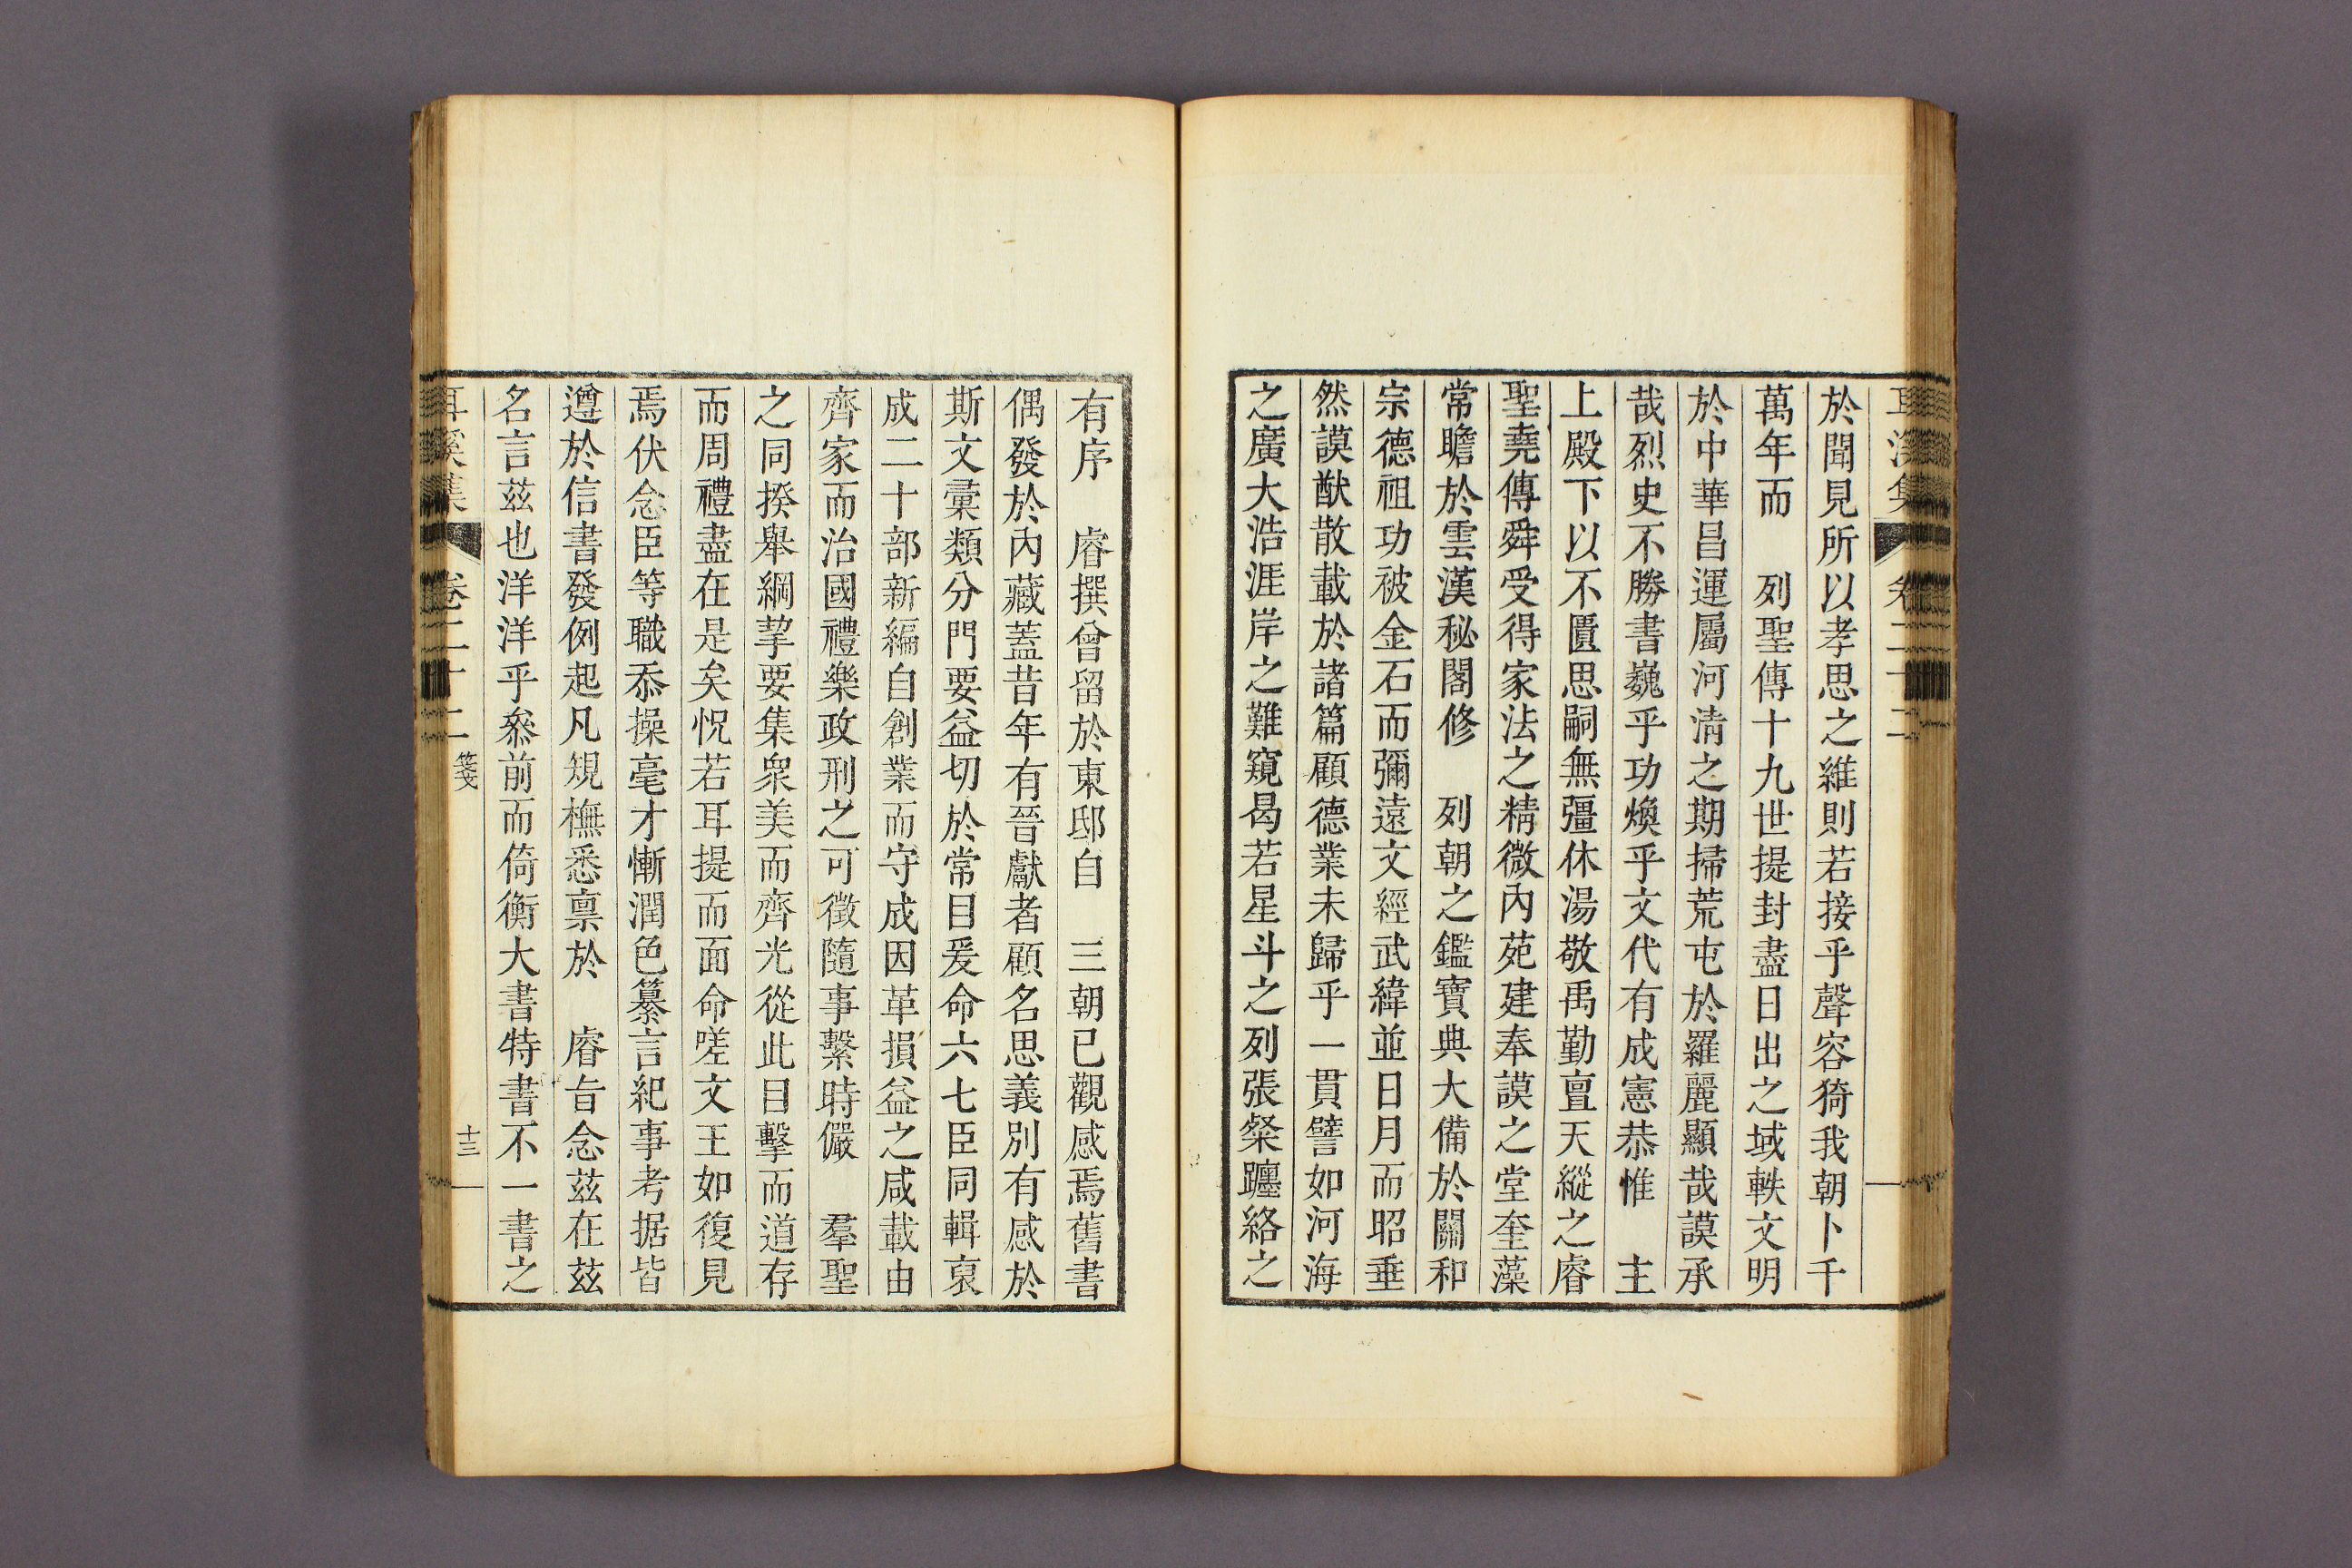 耳溪集 卷二十二
於聞見所以孝思之維則若接乎聲容猗我朝卜千
萬年而 列聖傳十九世提封盡日出之域軼文明
於中華昌運屬河淸之期掃荒屯於羅麗顯哉謨承
哉烈史不勝書巍乎功煥乎文代有成憲恭惟 主
上殿下以不匱思嗣無彊休湯敬禹勤亶天縱之睿
聖堯傳舜受得家法之精微內苑建奉謨之堂奎藻
常瞻於雲漢秘閣修 列朝之鑑寶典大備於關和
宗德祖功被金石而彌遠文經武緯並日月而昭垂
然謨猷散載於諸篇顧德業未歸乎一貫譬如河海
之廣大浩涯岸之難窺曷若星斗之列張粲躔絡之
有序 睿撰曾留於東邸自 三朝已觀感焉舊書
偶發於內藏蓋昔年有晉獻者顧名思義別有感於
斯文彙類分門要益切於常目爰命六七臣同輯裒
成二十部新編自創業而守成因革損益之咸載由
齊家而治國禮樂政刑之可徵隨事繫時儼 羣聖
之同揆舉綱挈要集衆美而齊光從此目擊而道存
而周禮盡在是矣怳若耳提而面命嗟文王如復見
焉伏念臣等職忝操毫才慚潤色纂言紀事考据皆
遵於信書發例起凡規橅悉禀於 睿旨念茲在茲
名言茲也洋洋乎叅前而倚衡大書特書不一書之
耳溪集 卷二十二 箋 十三